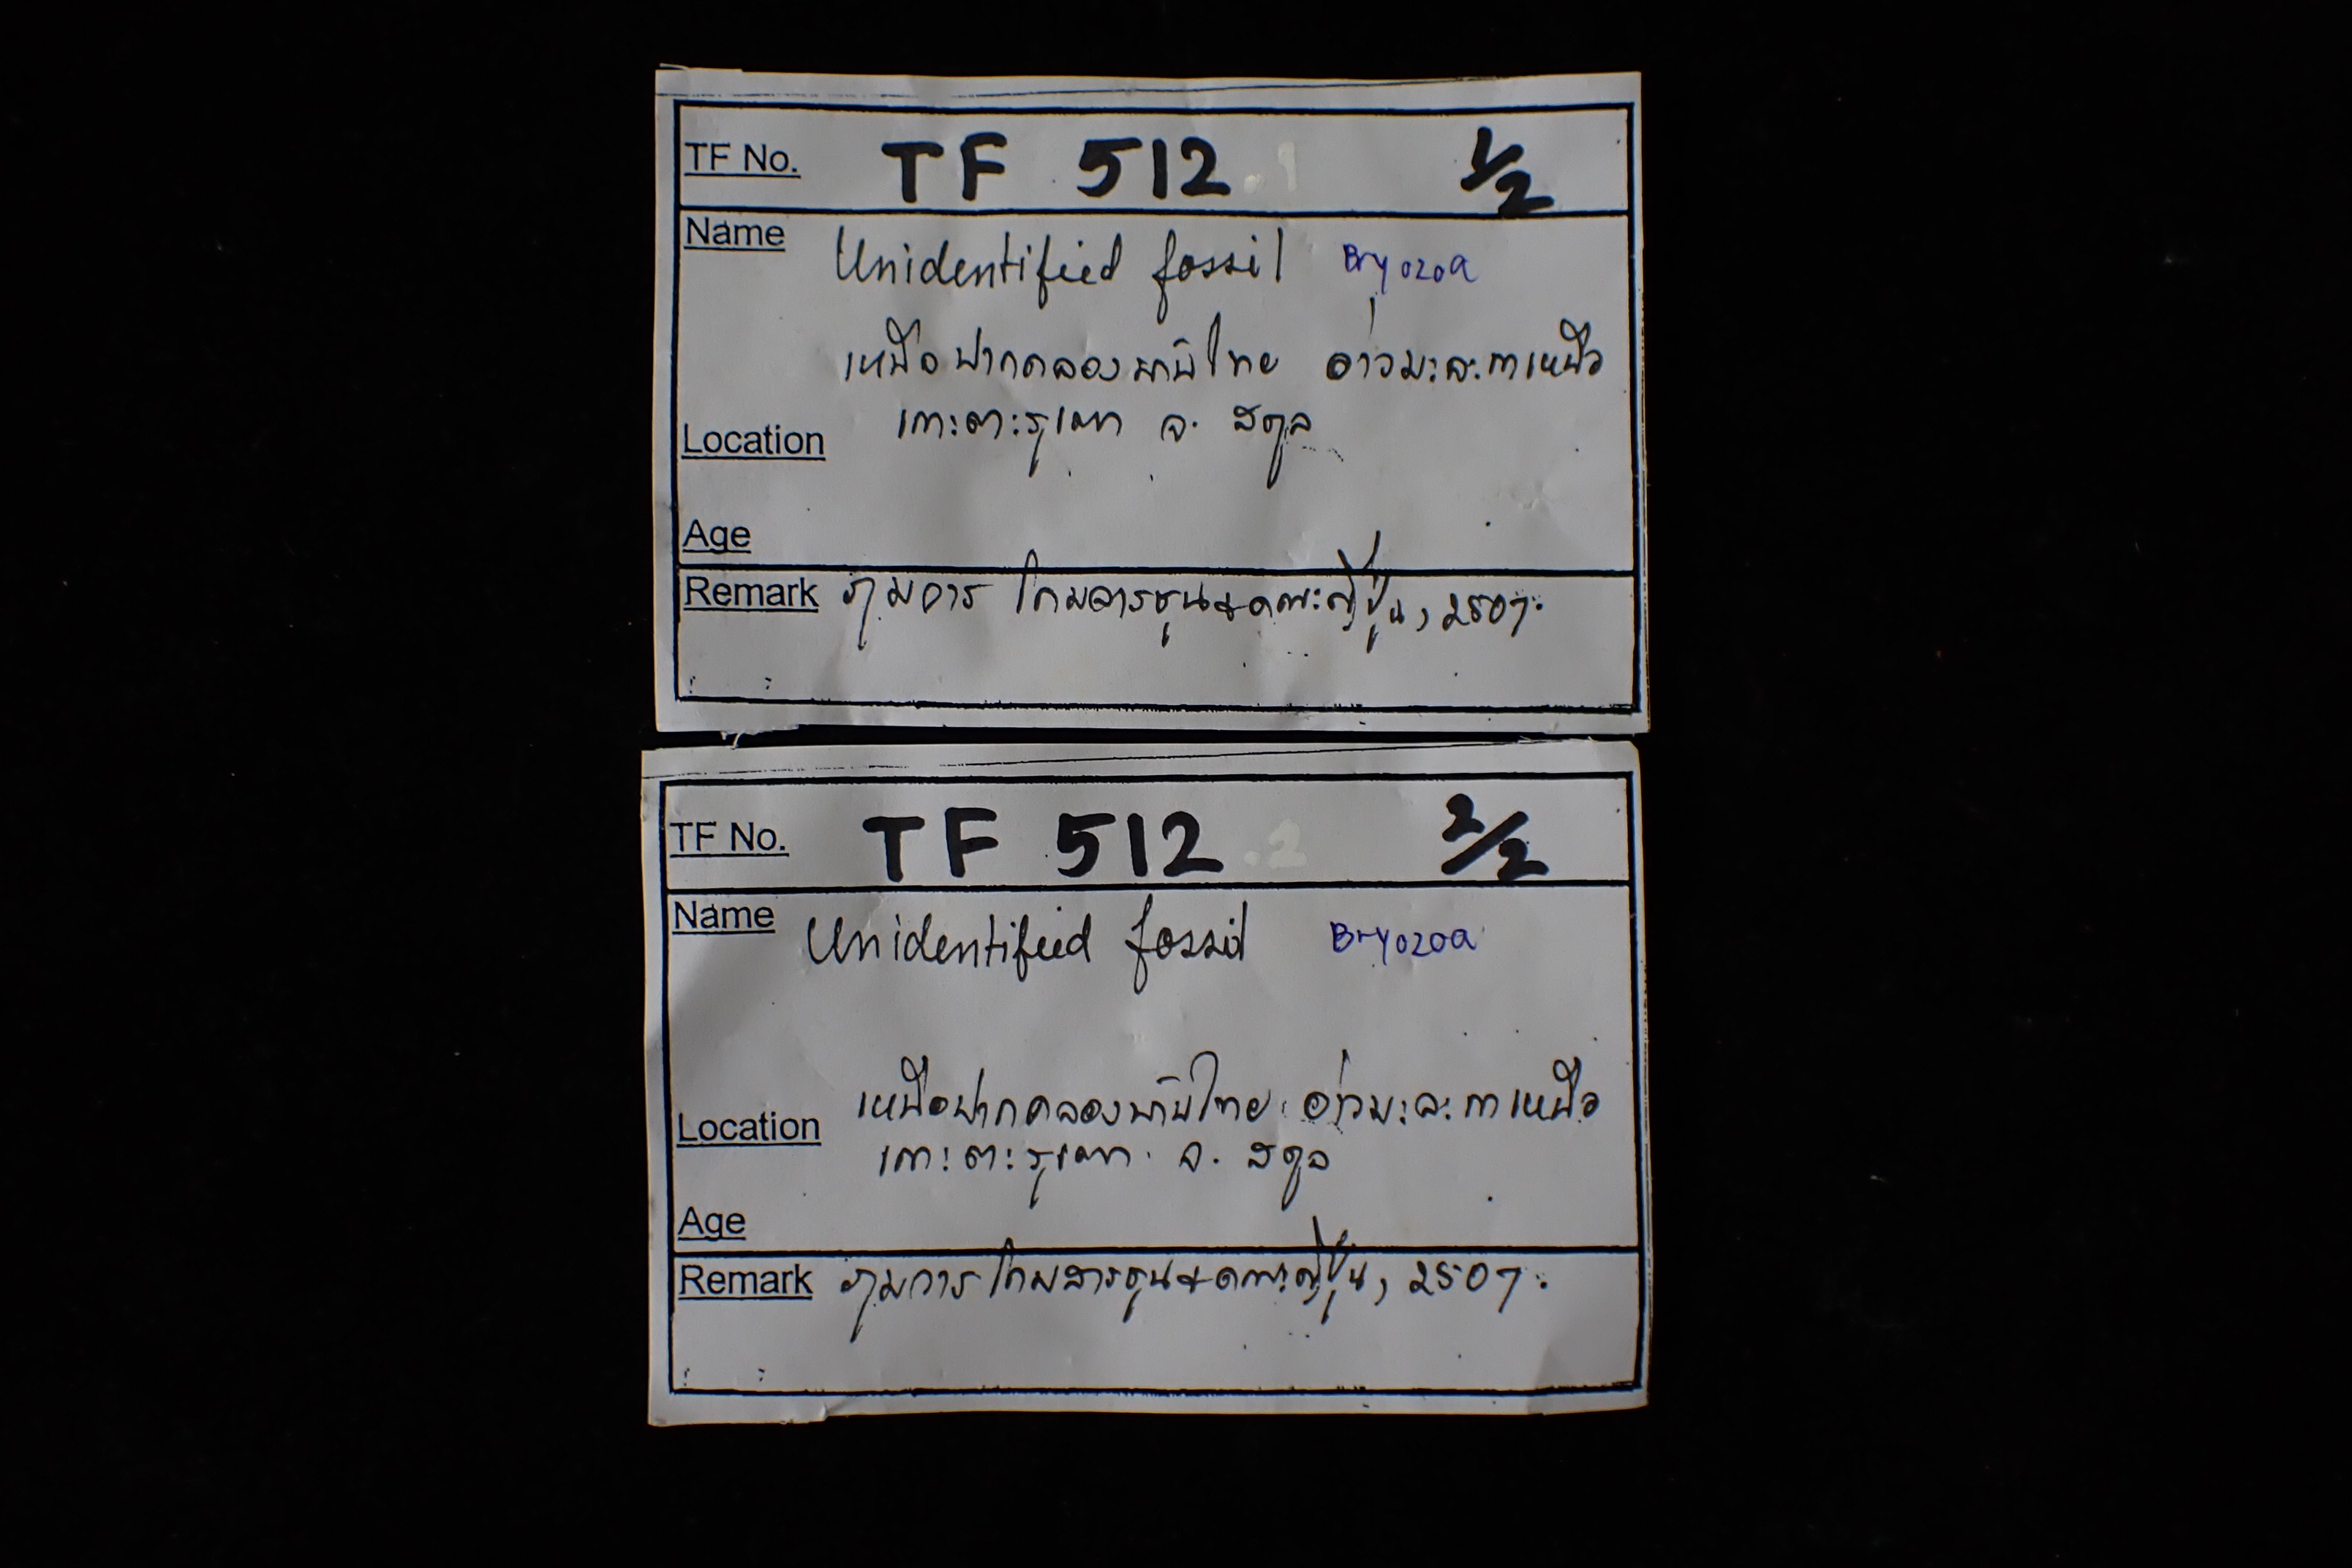 TF No. TF 512 .1 1/2
Name Unidentified fossil Bryozoa
เหนือปากคลองพานิไทย อ่าวมะละกาเหนือ
Location เกาะตะรุเตา จ. สตูล
Age
Remark กุมภาร โกมลารชุน+คณะญี่ปุ่น, 2507.
TF No. TF 512 .2 2/2
Name Unidentified fossil Bryozoa
Location เหนือปากคลองพานิไทย อ่าวมะละกาเหนือ
เกาะตะรุเตา จ. สตูล
Age
Remark โกมลารชุน+คณะญี่ปุ่น, 2507.